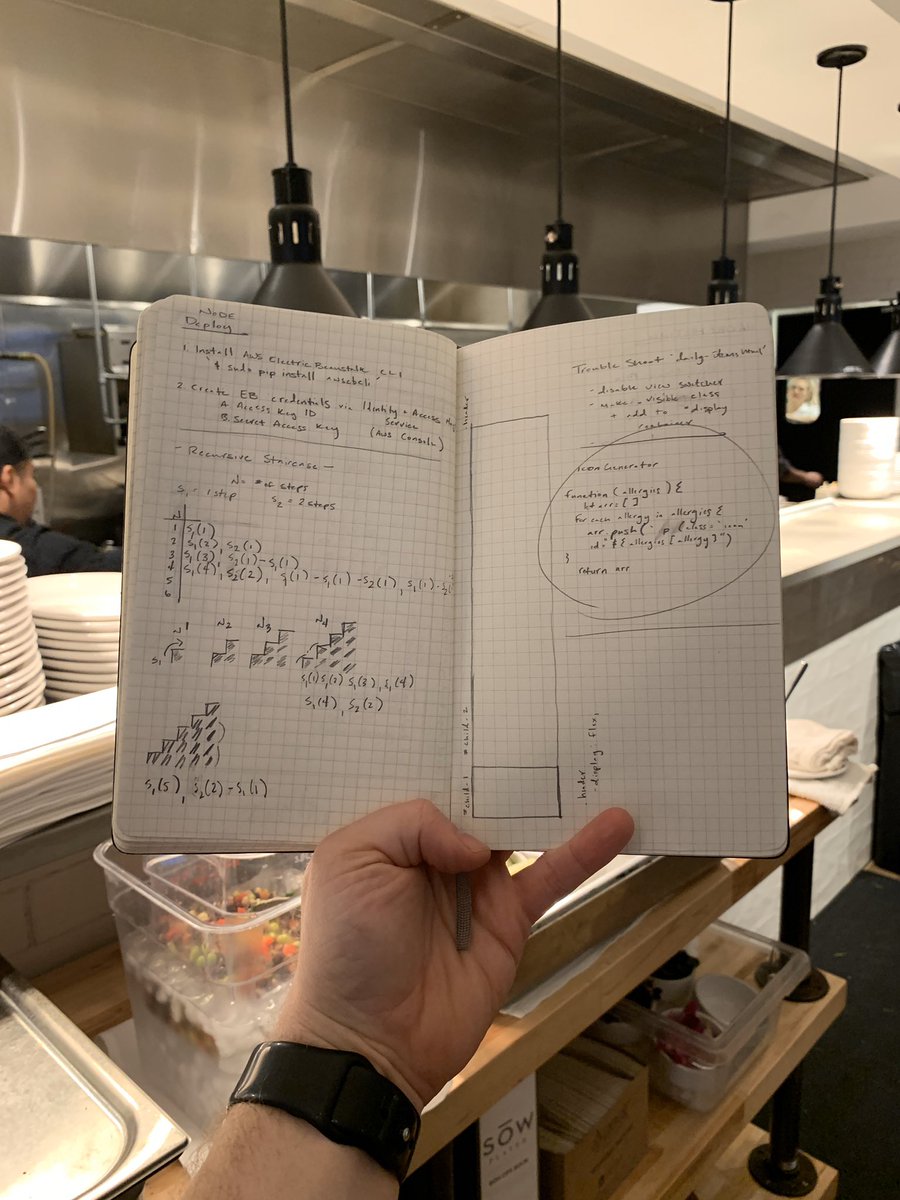 NODE
Deploy
1. Install AWS Electric Beanstalk CLI
$ sudo pip install awsebcli
2. Create EB credentials via Identity + Access
Service
A. Access Key ID
(AWS Console)
B. Secret Access Key
- Recursive Staircase -
N = # of steps
S1 = 1 step S2 = 2 steps
N
1 S1(1)
2 S1(2), S2(1)
3 S1(3), S2(1) - S1(1)
4 S1(4), S2(2), S1(1) - S1(1) - S2(1), S1(1) - S2
5
6
N1 N2 N3 N4
S1
S1(1) S1(2) S1(3), S1(4)
S1(4), S2(2)
S1(5), S2(2) - S1(1)
.hinder
#child-1 #child-2
.hinder
- display: flex;
Trouble Shoot
- disable view switcher
- make .visible class
+ add to "display
container
icon Generator
function (allergies) {
let arr = []
for each allergy in allergies {
arr.push(`p (class="icon"
id="${allergies[allergy]")
}
return arr
SOW